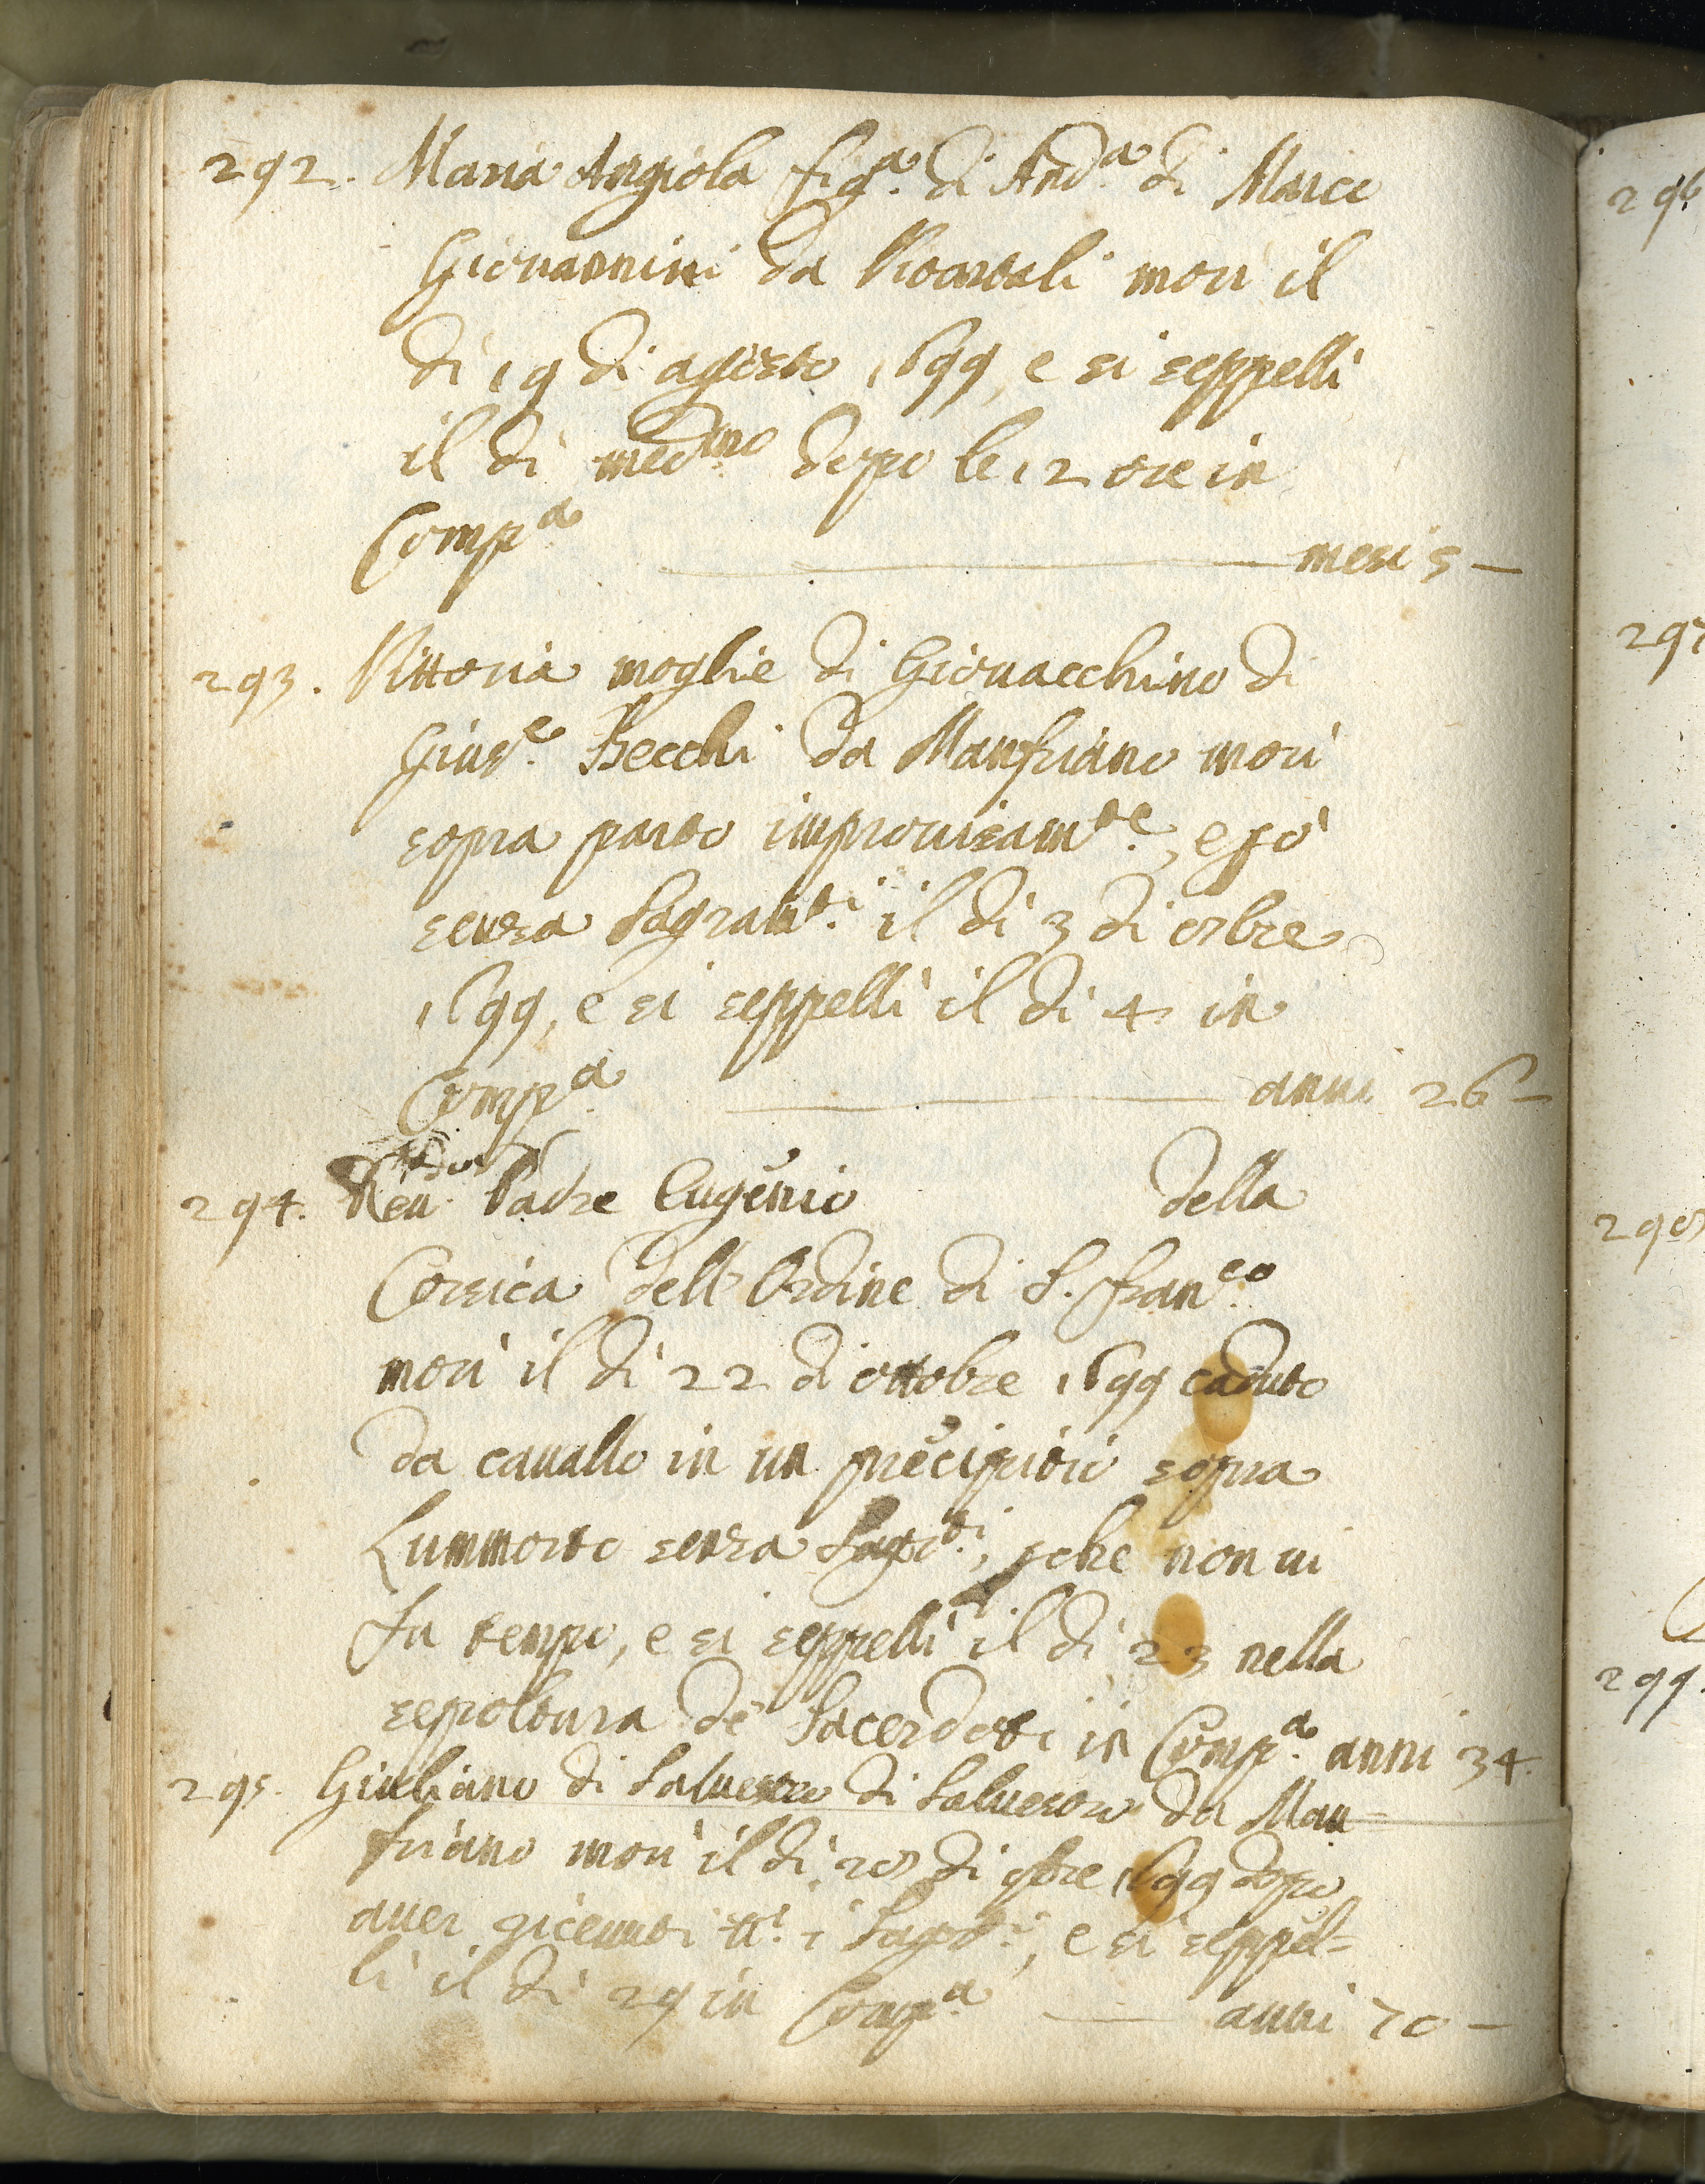 292. Maria Angiola fig.a di And.a di Marco
Giouannini da morì il
dì 19 di agosto 1699, e si seppellì
il dì med.mo dopo le 12 ore in
Comp.a mesi 5
293. Vittoria moglie di Giouacchino di
Gius.e Becchi da Manfriano morì
sopra parto improuisam.te, e fò
senza Sagram.ti il dì 3 di 8bre
1699, e si seppellì il dì 4 in
Comp.a anni 26
294. Reu. Padre Eugenio della
Corsica dell'Ordine di S. Fran.co
morì il dì 22 di ottobre 1699 caduto
da cauallo in un precipitio sopra
Lummorto senza Sagr.ti, pche non ui
fu tempo, e si seppellì il dì 23 nella
sepoltura de Sacerdoti in Comp.a anni 34.
295. Giuliano di Saluestro di Saluestro da Man=
friano morì il dì 28 di 9bre 1699 dopo
auer riceuuti tt.i i Sagr.ti, e si seppel=
lì il dì 29 in Comp.a anni 70
296
297
298
299.